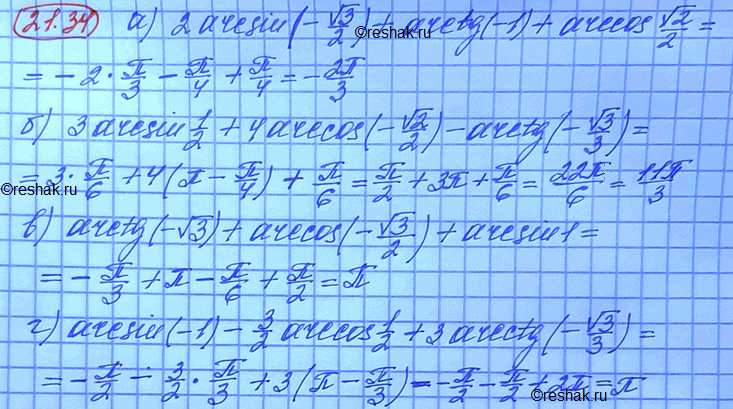 21.34 а) 2 arcsin(-√3/2) + arctg(-1) + arccos √2/2 =
= -2·π/3 - π/4 + π/4 = -2π/3
б) 3 arcsin 1/2 + 4 arccos(-√2/2) - arctg(-√3/3) =
= 3·π/6 + 4(π - π/4) + π/6 = π/2 + 3π + π/6 = 22π/6 = 11π/3
©reshak.ru ©reshak.ru
в) arctg(-√3) + arccos(-√3/2) + arcsin 1 =
= -π/3 + π - π/6 + π/2 = π
г) arcsin(-1) - 3/2 arccos 1/2 + 3 arcctg(-√3/3) =
= -π/2 - 3/2·π/3 + 3(π - π/3) = -π/2 - π/2 + 2π = π
©reshak.ru